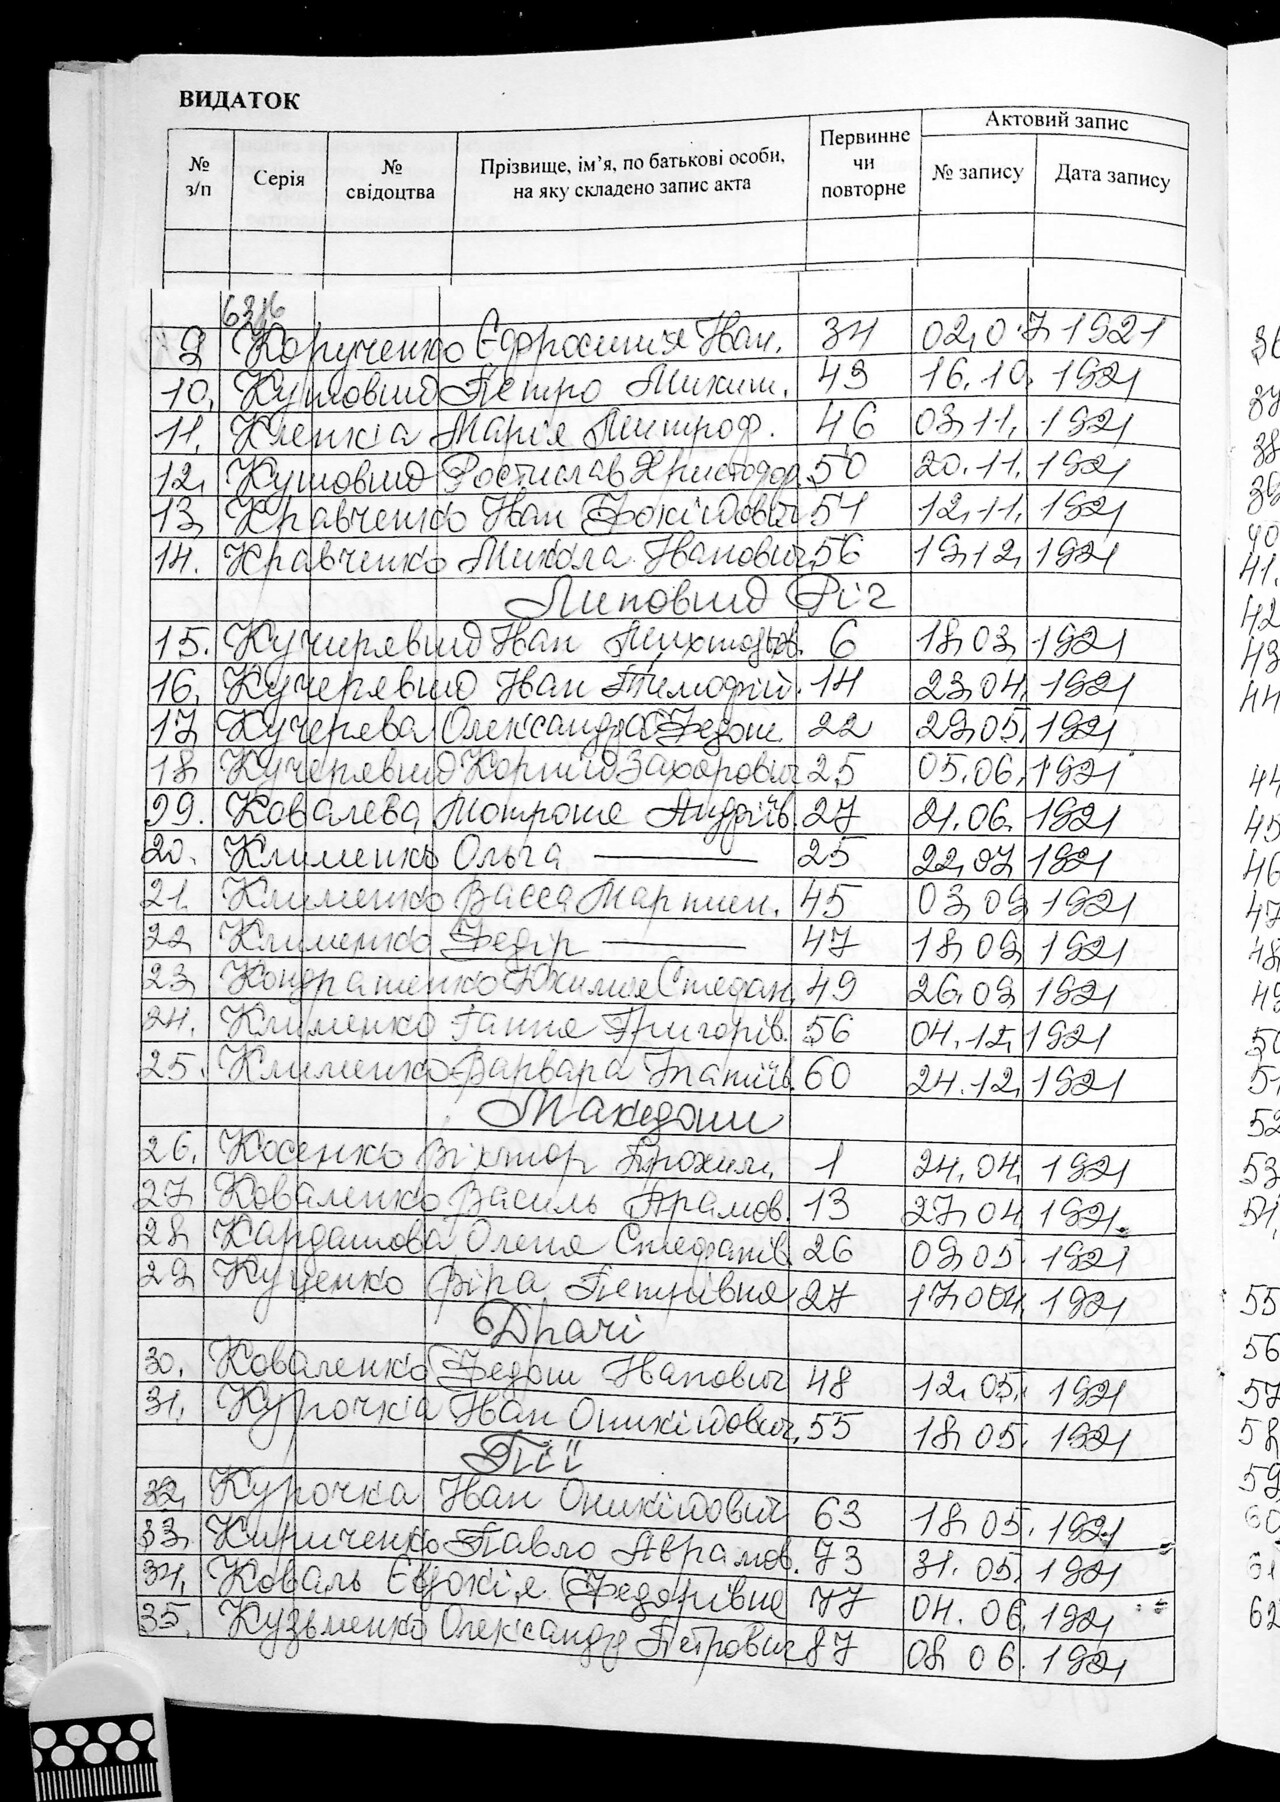 ВИДАТОК
№ з/п Серія № свідоцтва Прізвище, ім'я, по батькові особи, на яку складено запис акта Первинне чи повторне Актовий запис № запису Дата запису
9 Єфросинія Іван. 34 02.07 1921
10. Кутовий Петро 43 16.10. 1921
11. Марія Митроф. 46 03.11. 1921
12. Кутовий Ростислав Христофор. 50 20.11. 1921
13. Кравченко Іван 12.11. 1921
14. Кравченко Микола Іванович 56 19.12. 1921
Липовий Ріг
15. Кучерявий Іван 6 18.03. 1921
16. Кучерявий Іван Тимофій. 14 23.04. 1921
17 Кучерява Олександра Федос. 22 29.05. 1921
18 Кучерявий Корній Захарович 25 05.06. 1921
99. Ковалева Мотрона Андріїв. 27 21.06. 1921
20. Клименко Ольга — 25 22.07 1921
21. Клименко Васса Мартин. 45 03.09 1921
22 Клименко Федір — 47 18.09 1921
23 Кондратенко Юхимія Степан. 49 26.09 1921
24. Клименко Ганна Григорів. 56 04.12. 1921
25. Клименко Варвара Гнатіїв. 60 24.12. 1921
Македони
26. Косенко Віктор Прохин. 1 24.04. 1921
27. Коваленко Василь Арамов. 13 27.04 1921
28 Кардашова Олена Стефанів. 26 09.05. 1921
29 Куценко Віра Петрівна 27 1921
Драчі
30. Коваленко Федот Іванович 48 12.05. 1921
31. Курочка Іван Оникійович. 55 18.05. 1921
Пії
32. Курочка Іван Оникійович 63 18.05. 1921
33. Кириченко Павло Аврамов. 73 31.05. 1921
34. Коваль Євдокія Федорівна 77 04.06. 1921
35. Кузьменко Олександр Петрович 87 08 06. 1921
41.
42
43
44
44
45
46
47
48
49
50
51
52
53
54
55
56
57
58
59
60
61
62